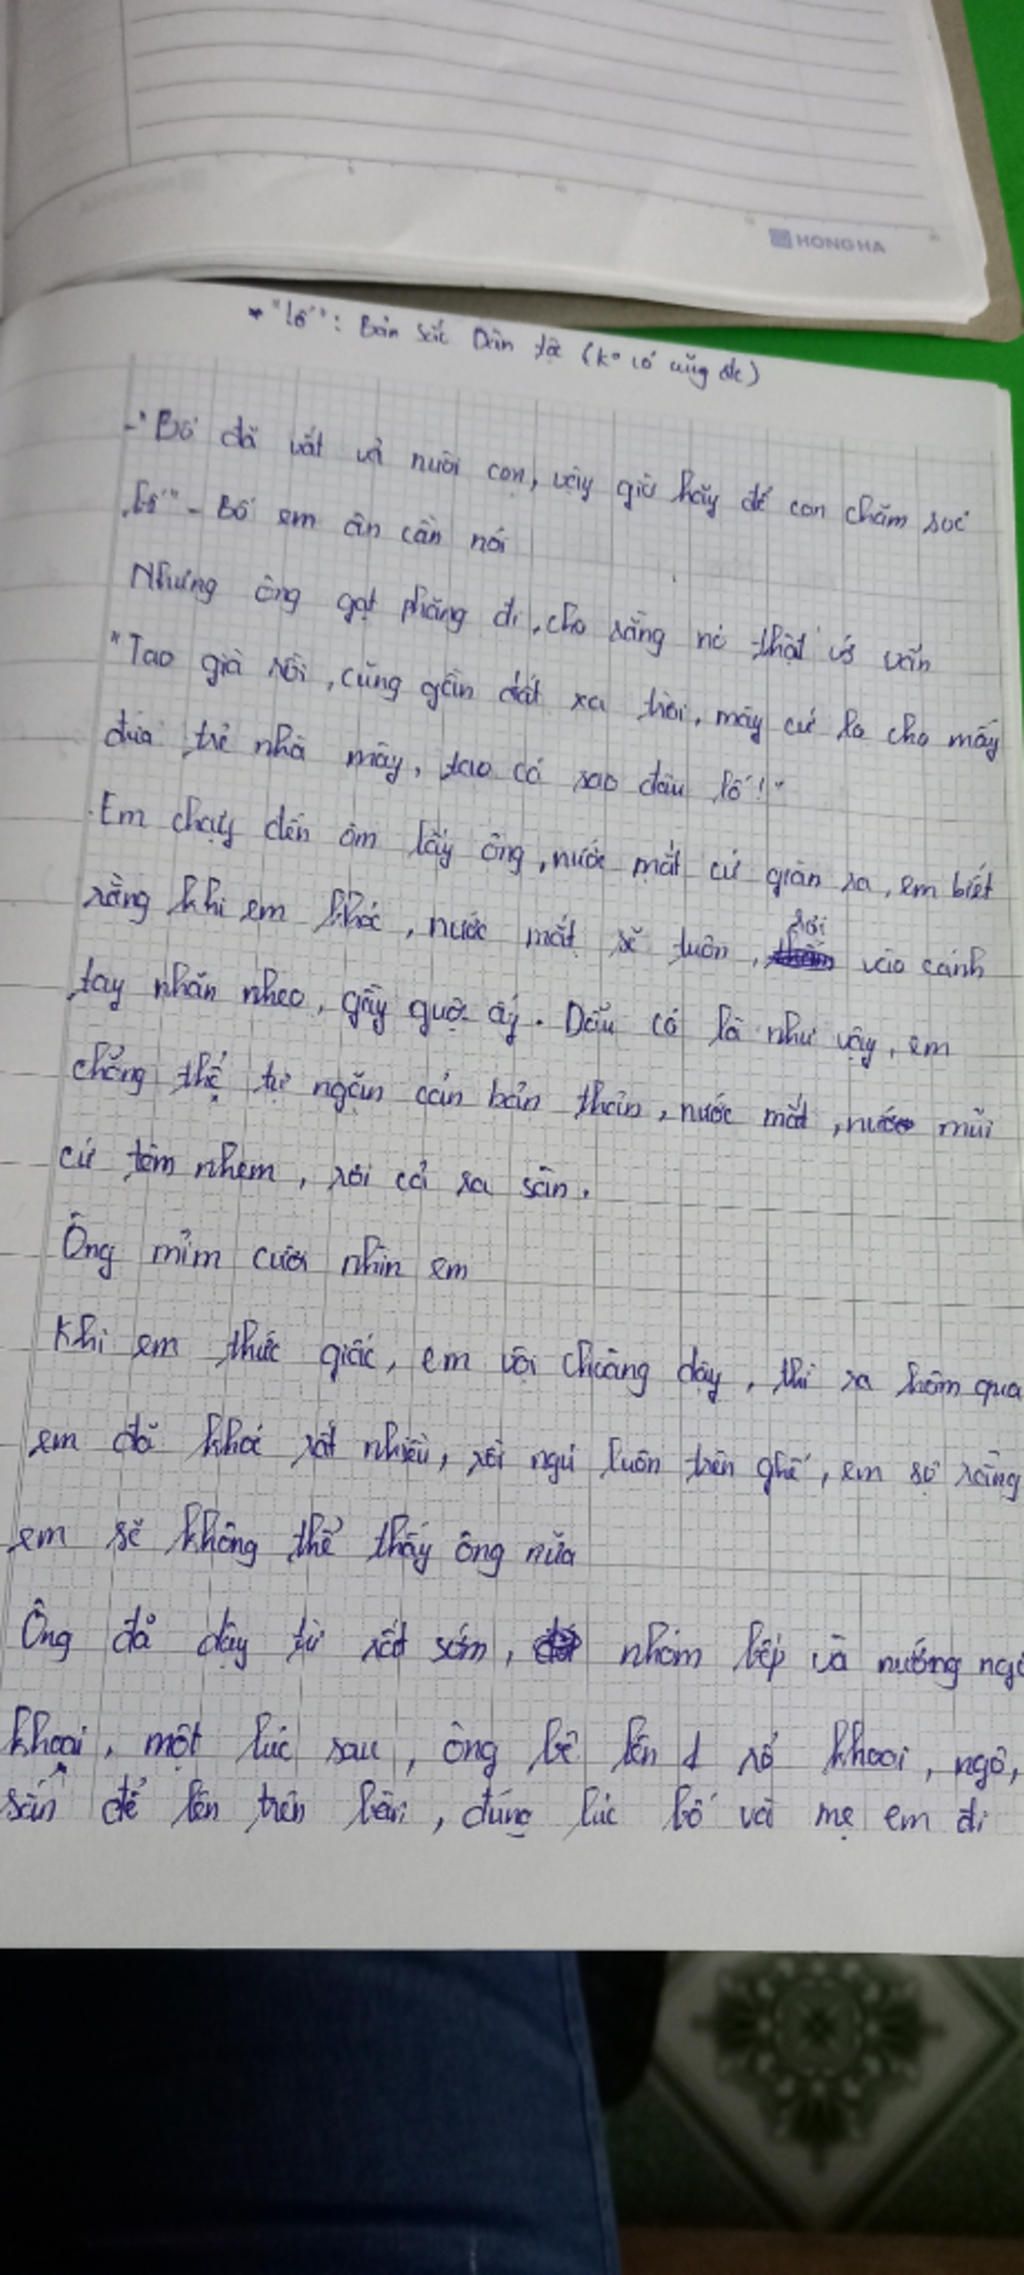 HONG HA
* "lố": Bản sắc Dân tộc (k° có cũng đc)
- "Bố đã vất vả nuôi con, vậy giờ hãy để con chăm sóc
bố" - Bố em ân cần nói
Nhưng ông gạt phăng đi, cho rằng nó thật vớ vẩn
"Tao già rồi, cũng gần đất xa trời, mày cứ lo cho mấy
đứa trẻ nhà mày, tao có sao đâu lố!"
Em chạy đến ôm lấy ông, nước mắt cứ giàn ra, em biết
rằng khi em khóc, nước mắt sẽ tuôn, rơi vào cánh
tay nhăn nheo, gầy guộc ấy. Dẫu có là như vậy, em
chẳng thể tự ngăn cản bản thân, nước mắt, nước mũi
cứ tèm nhem, rơi cả ra sàn.
Ông mỉm cười nhìn em
Khi em thức giấc, em vội choàng dậy, thì ra hôm qua
em đã khóc rất nhiều, rồi ngủ luôn trên ghế, em sợ rằng
em sẽ không thể thấy ông nữa
Ông đã dậy từ rất sớm, nhóm bếp và nướng ngô
khoai, một lúc sau, ông bê lên 1 rổ khoai, ngô,
sắn để lên trên bàn, đúng lúc bố và mẹ em đi